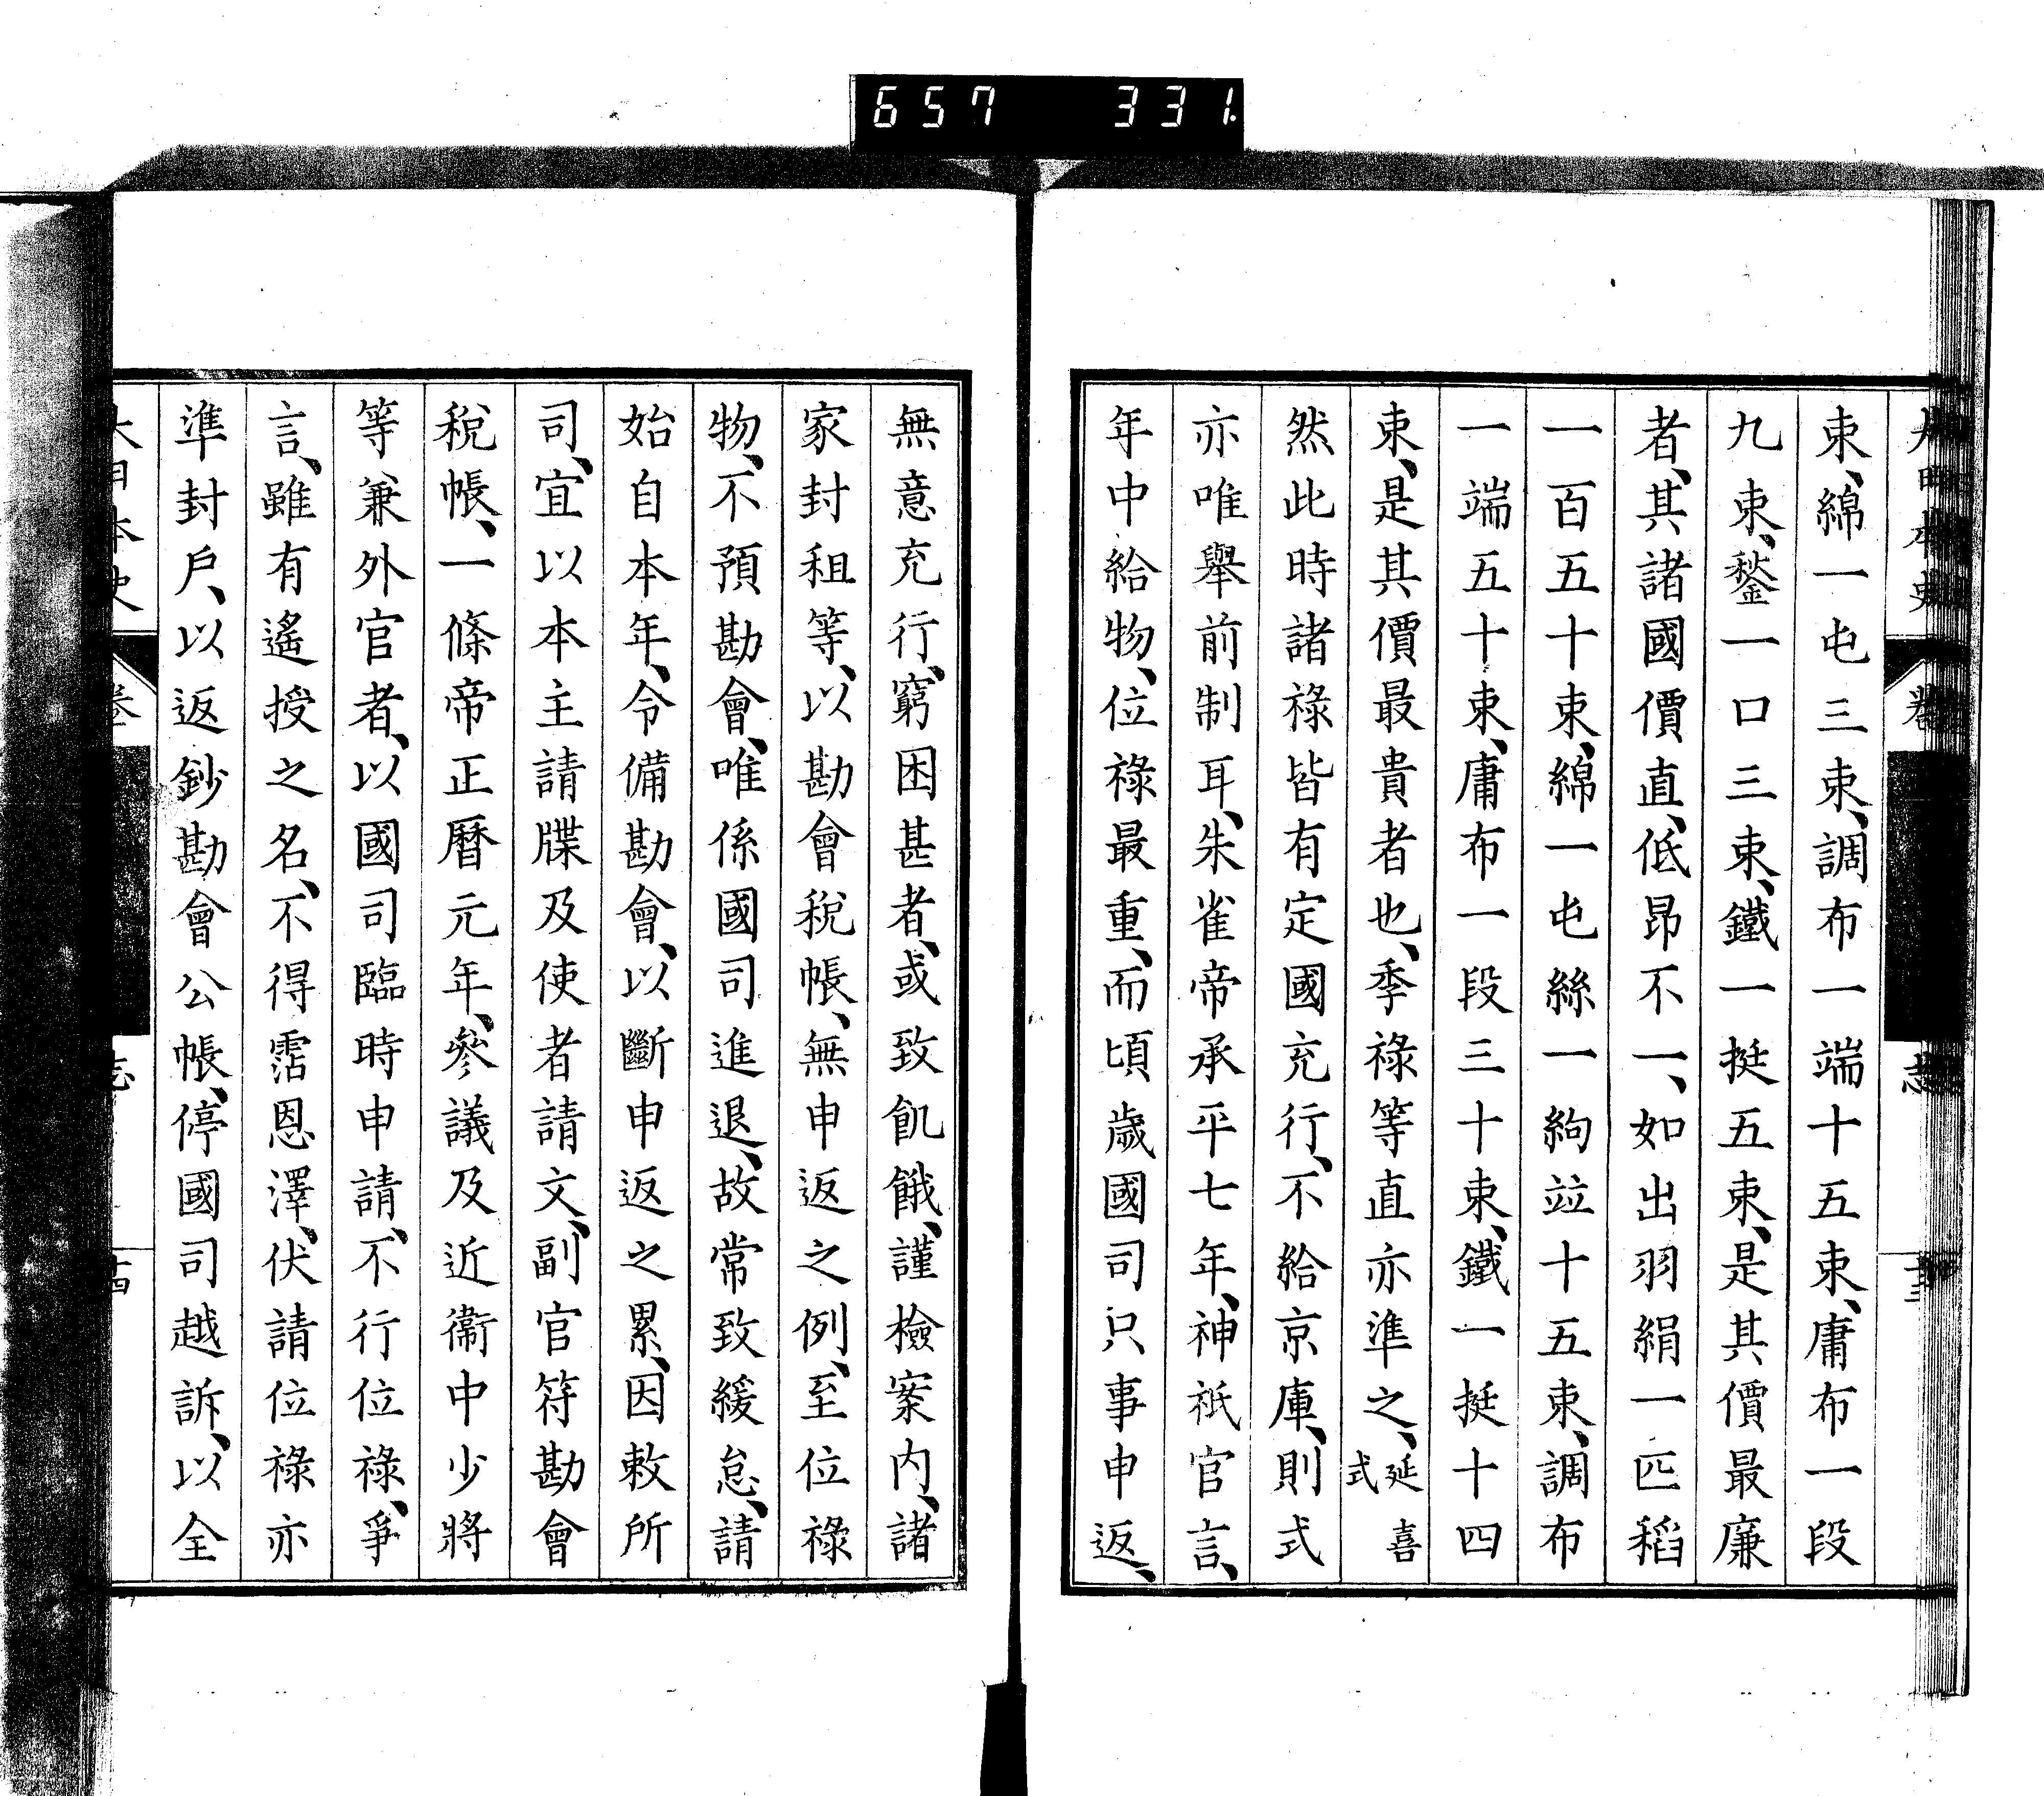 657 331.
束、綿一屯三束、調布一端十五束、庸布一段
九束、鍫一口三束、鐵一挺五束、是其價最廉
者、其諸國價直、低昂不一、如出羽絹一匹稻
一百五十束、綿一屯絲一絇竝十五束、調布
一端五十束、庸布一段三十束、鐵一挺十四
束、是其價最貴者也、季祿等直亦準之、延喜式
然此時諸祿皆有定國充行、不給京庫、則式
亦唯擧前制耳、朱雀帝承平七年、神祇官言、
年中給物、位祿最重、而頃歲國司只事申返、
無意充行、窮困甚者、或致飢餓、謹檢案内、諸
家封租等、以勘會稅帳、無申返之例、至位祿
物、不預勘會、唯係國司進退、故常致緩怠、請
始自本年、令備勘會、以斷申返之累、因敕所
司、宜以本主請牒及使者請文、副官符勘會
稅帳、一條帝正曆元年、參議及近衞中少將
等兼外官者、以國司臨時申請、不行位祿、爭
言、雖有遙授之名、不得霑恩澤、伏請位祿亦
準封戶、以返鈔勘會公帳、停國司越訴、以全